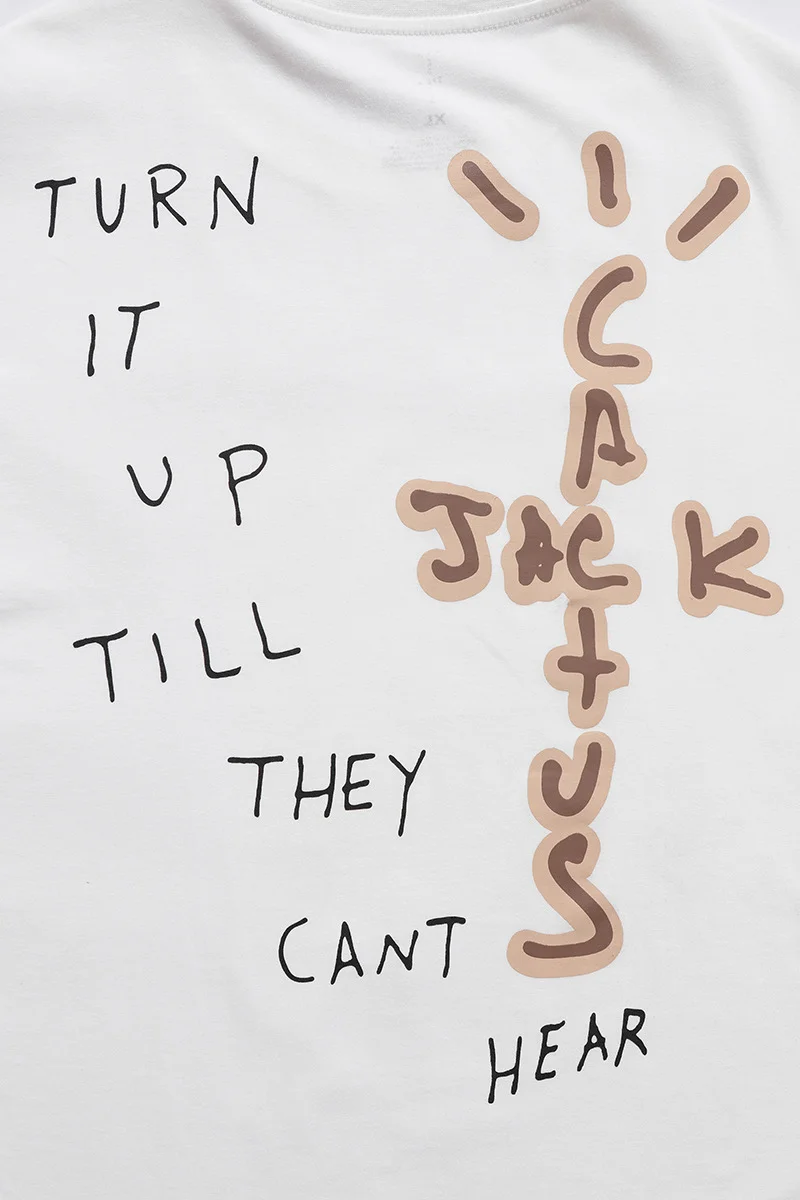 TURN
IT
UP
TILL
THEY
CANT
HEAR
CACTUS
JACK